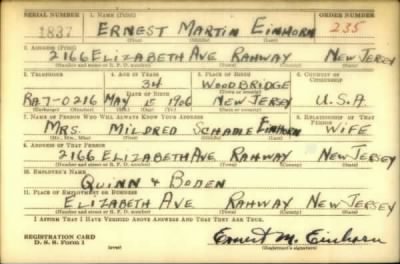 SERIAL NUMBER 1. NAME (Print) ORDER NUMBER
1837 ERNEST MARTIN EINHORN 235
(First) (Middle) (Last)
2. ADDRESS (Print)
2166 ELIZABETH AVE RAHWAY NEW JERSEY
(Number and street or R. F. D. number) (Town) (County) (State)
3. TELEPHONE 4. AGE IN YEARS 5. PLACE OF BIRTH 6. COUNTRY OF CITIZENSHIP
34 WOODBRIDGE
DATE OF BIRTH
RA 7-0216 MAY 15 1906 NEW JERSEY U.S.A.
7. NAME OF PERSON WHO WILL ALWAYS KNOW YOUR ADDRESS 8. RELATIONSHIP OF THAT PERSON
MRS. MILDRED EINHORN WIFE
(Mr., Mrs., Miss) (First) (Middle) (Last)
9. ADDRESS OF THAT PERSON
2166 ELIZABETH AVE RAHWAY NEW JERSEY
(Number and street or R. F. D. number) (Town) (County) (State)
10. EMPLOYER'S NAME
QUINN & BODEN
11. PLACE OF EMPLOYMENT OR BUSINESS
ELIZABETH AVE RAHWAY NEW JERSEY
(Number and street or R. F. D. number) (Town) (County) (State)
I AFFIRM THAT I HAVE VERIFIED ABOVE ANSWERS AND THAT THEY ARE TRUE.
REGISTRATION CARD
D. S. S. Form 1 (over) Ernest M. Einhorn
(Registrant's signature)